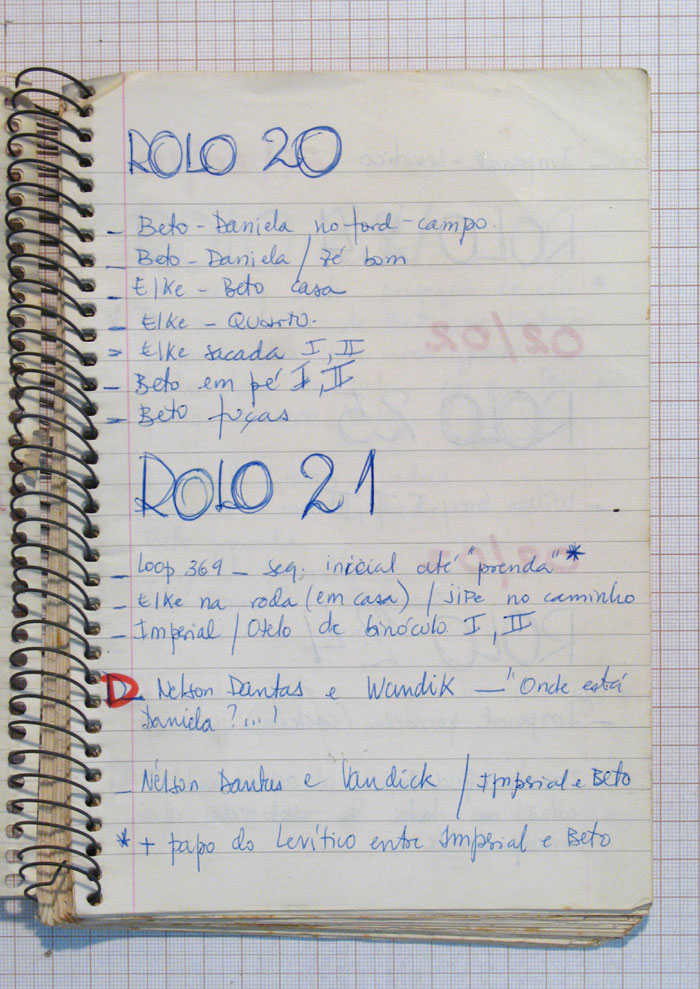 ROLO 20
– Beto - Daniela no ford-campo.
– Beto - Daniela / Zé bom
– Elke - Beto casa
– Elke - Quarto.
– Elke sacada I, II
– Beto em pé I, II
– Beto fuças
ROLO 21
– Loop 369 – seq. inicial até "prenda" *
– Elke na roda (em casa) / JIPE no caminho
– Imperial / Otelo de binóculo I, II
D – Nelson Dantas e Wandik – "Onde está
Daniela?...!
– Nélson Dantas e Vandick / Imperial e Beto
* + papo do Levítico entre Imperial e Beto